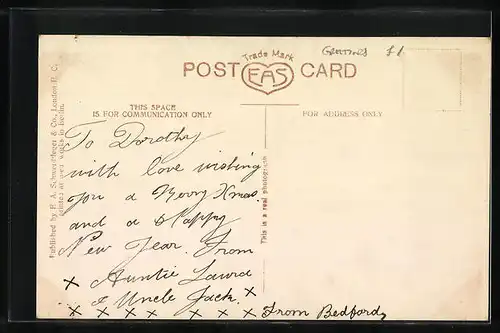 Greetings £1
Trade Mark
POST EAS CARD
THIS SPACE
IS FOR COMMUNICATION ONLY
FOR ADDRESS ONLY
Published by F. A. Schwerdfeger & Co., London E. C.
printed at own works in Berlin.
To Dorothy
with love wishing
you a Merry Xmas.
and a Happy
New Year. From
x Auntie Laura
& Uncle Jack. x
x x x x x x x x
From Bedford,
This is a real photograph